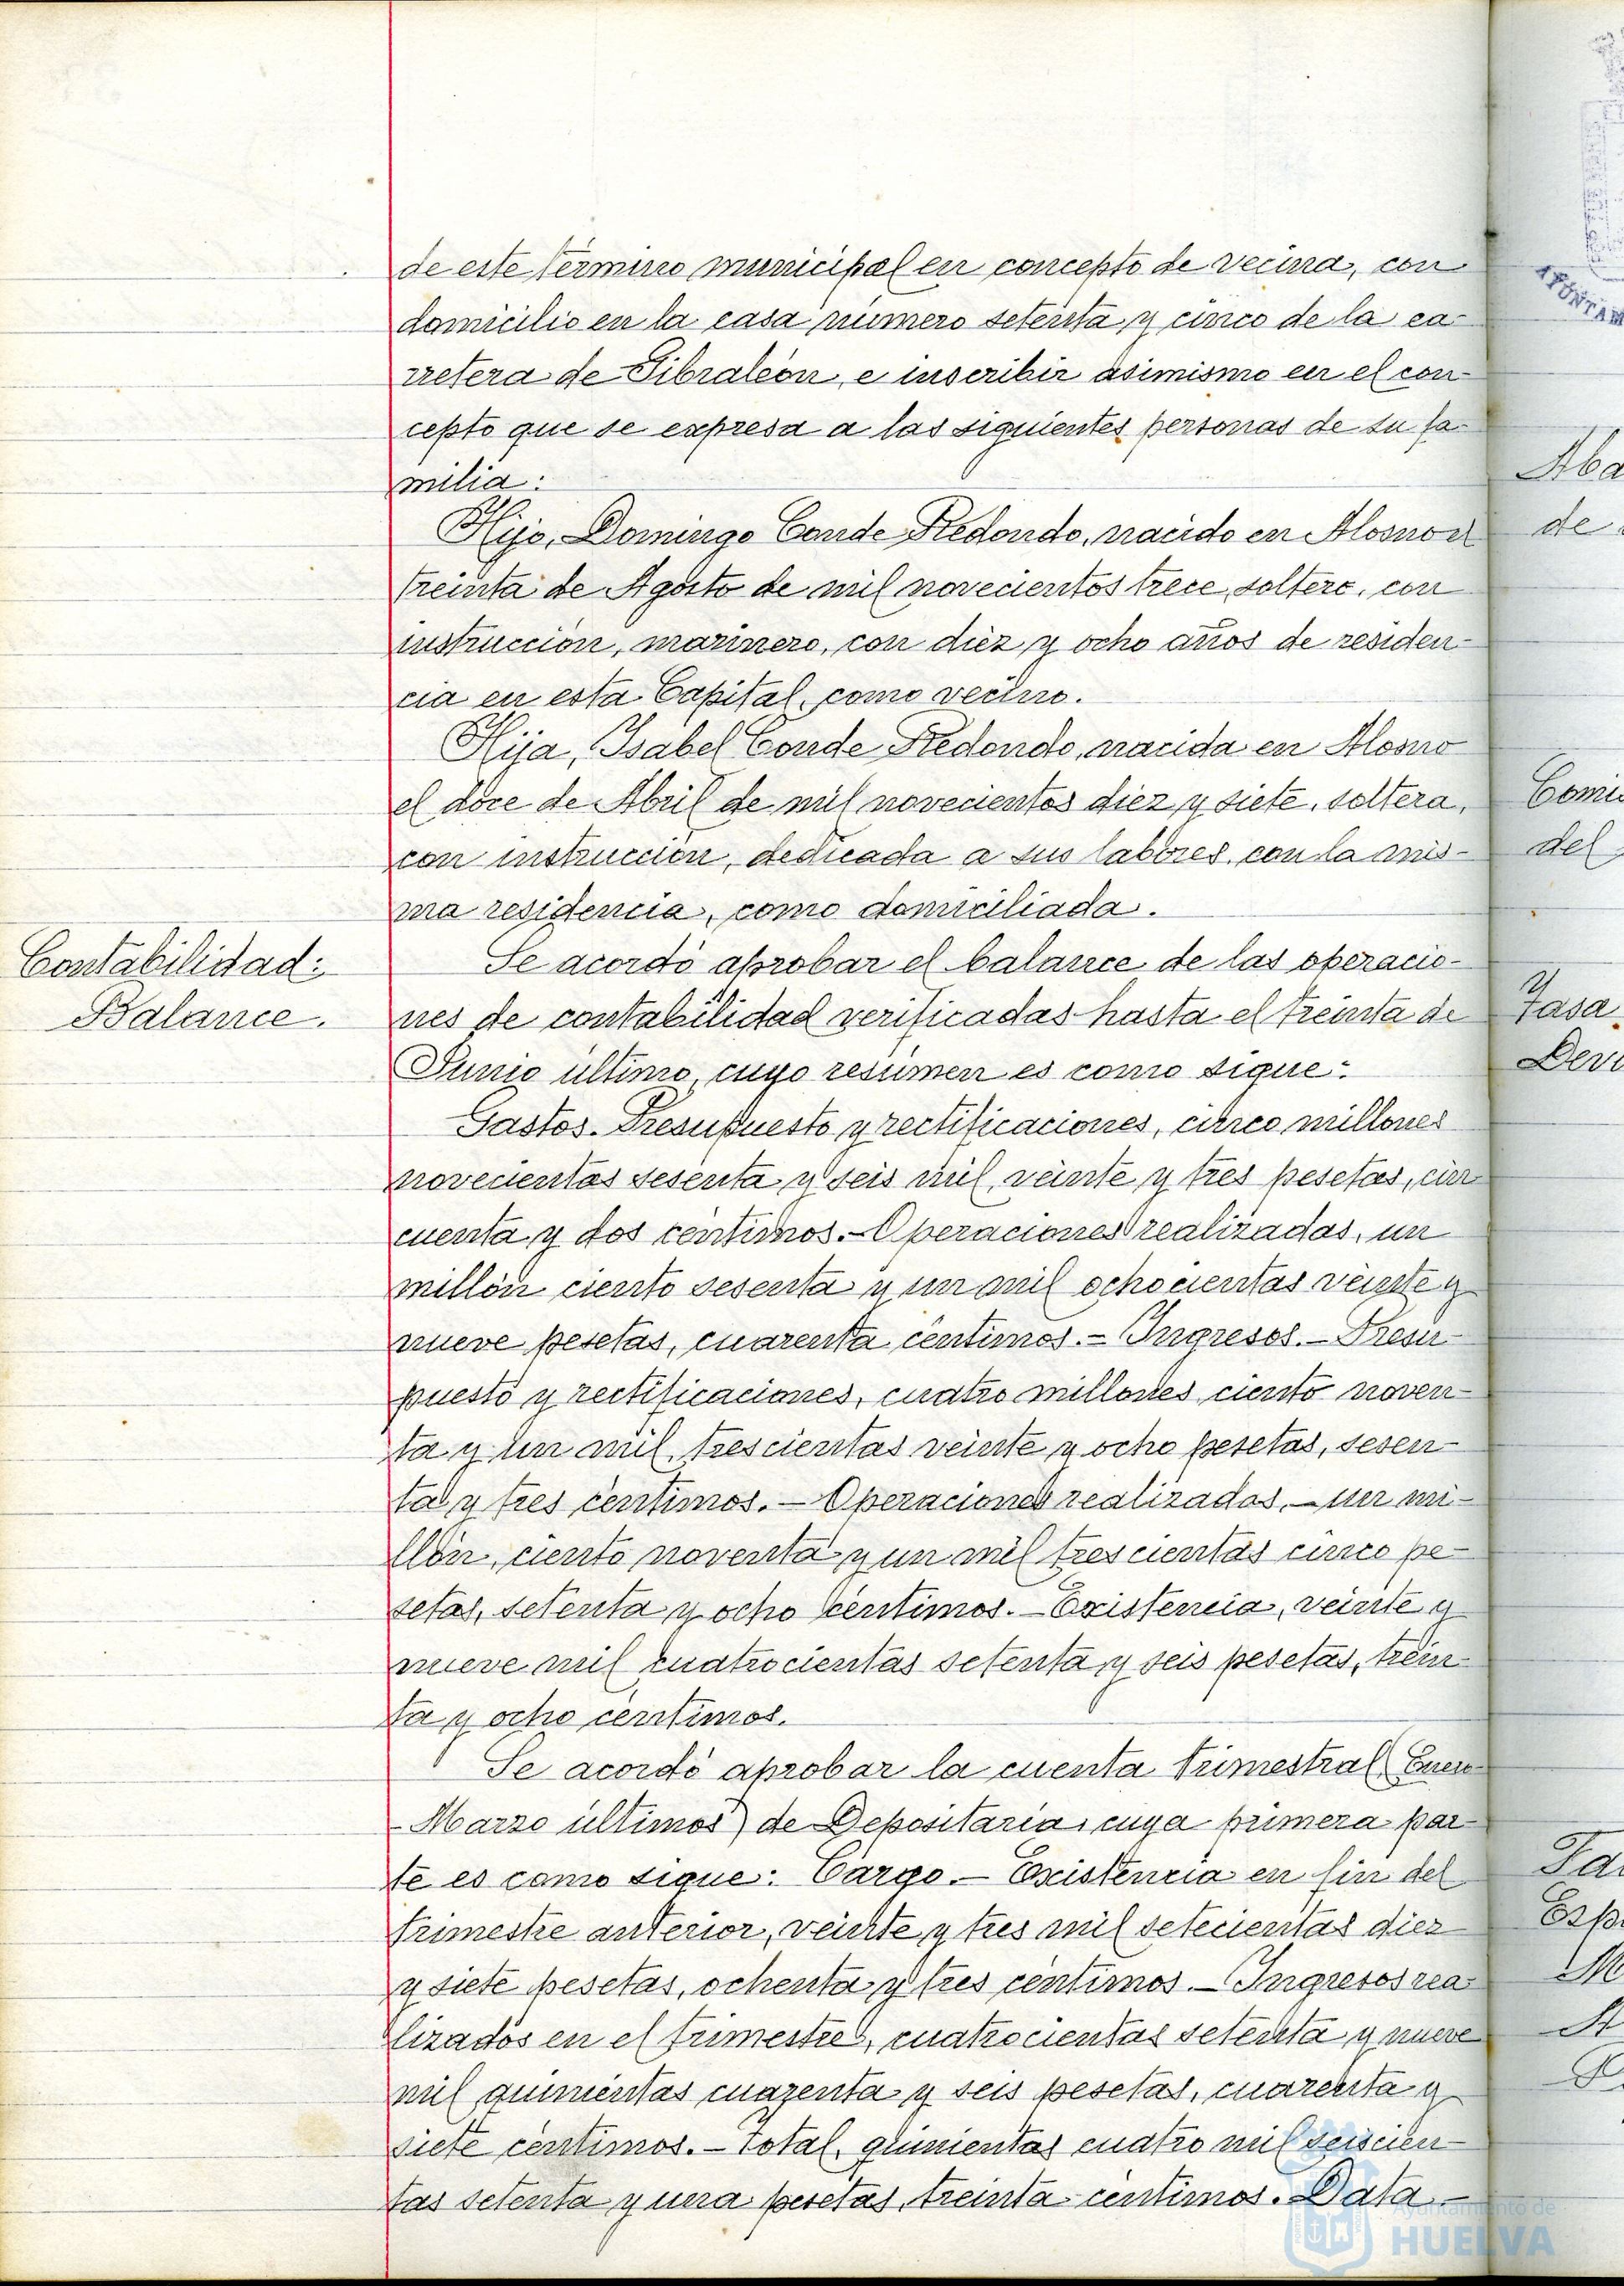 de este término municipal en concepto de vecina, con
domicilio en la casa número setenta y cinco de la ca-
rretera de Gibraleón, e inscribir asimismo en el con-
cepto que se expresa a las siguientes personas de su fa-
milia:
Hijo, Domingo Conde Redondo, nacido en Alosno el
treinta de Agosto de mil novecientos trece, soltero, con
instrucción, marinero, con diez y ocho años de residen-
cia en esta Capital, como vecino.
Hija, Isabel Conde Redondo, nacida en Alosno
el doce de Abril de mil novecientos diez y siete, soltera,
con instrucción, dedicada a sus labores, con la mis-
ma residencia, como domiciliada.
Contabilidad:
Balance.
Se acordó aprobar el balance de las operacio-
nes de contabilidad verificadas hasta el treinta de
Junio último, cuyo resúmen es como sigue:
Gastos.- Presupuesto y rectificaciones, cinco millones
novecientas sesenta y seis mil, veinte y tres pesetas, cin-
cuenta y dos céntimos.- Operaciones realizadas, un
millón ciento sesenta y un mil ochocientas veinte y
nueve pesetas, cuarenta céntimos.- Ingresos.- Presu-
puesto y rectificaciones, cuatro millones ciento noven-
ta y un mil, trescientas veinte y ocho pesetas, sesen-
ta y tres céntimos.- Operaciones realizadas,- un mi-
llón, ciento noventa y un mil trescientas cinco pe-
setas, setenta y ocho céntimos.- Existencia, veinte y
nueve mil cuatrocientas setenta y seis pesetas, trein-
ta y ocho céntimos.
Se acordó aprobar la cuenta trimestral (Enero-
-Marzo últimos) de Depositaria, cuya primera par-
te es como sigue: Cargo.- Existencia en fin del
trimestre anterior, veinte y tres mil setecientas diez
y siete pesetas, ochenta y tres céntimos.- Ingresos rea-
lizados en el trimestre, cuatrocientas setenta y nueve
mil quinientas cuarenta y seis pesetas, cuarenta y
siete céntimos.- Total, quinientas cuatro mil seiscien-
tas setenta y una pesetas, treinta céntimos. Data.-
Aba
de
Comi
del
Tasa
Dev
Esp
Ayuntamiento de
HUELVA